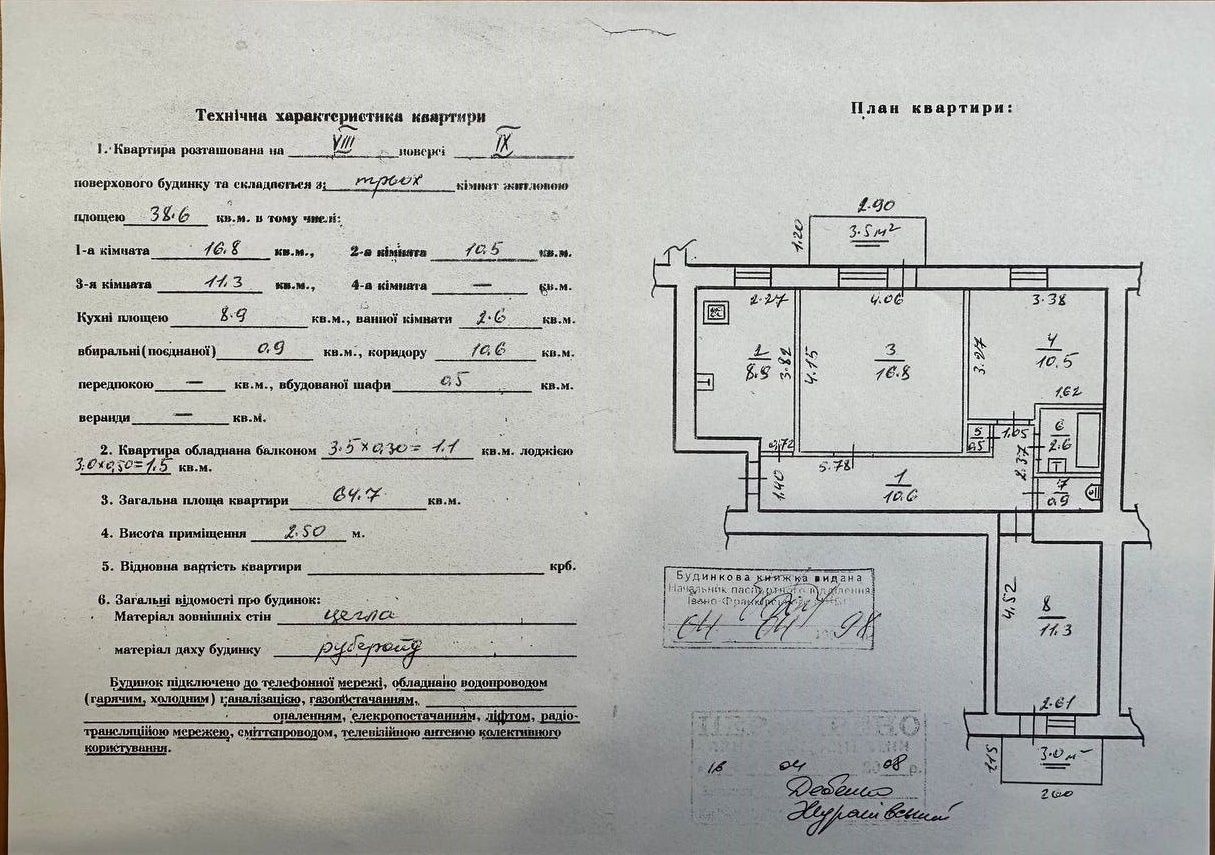 Технічна характеристика квартири
1. Квартира розташована на VIII поверсі IX
поверхового будинку та складається з: трьох кімнат житловою
площею 38.6 кв.м. в тому числі:
1-а кімната 16.8 кв.м., 2-а кімната 10.5 кв.м.
3-я кімната 11.3 кв.м., 4-а кімната — кв.м.
Кухні площею 8.9 кв.м., ванної кімнати 2.6 кв.м.
вбиральні (поєднаної) 0.9 кв.м., коридору 10.6 кв.м.
передпокою — кв.м., вбудованої шафи 0,5 кв.м.
веранди — кв.м.
2. Квартира обладнана балконом 3.5×0,30= 1.1 кв.м. лоджією
3.0×0,50=1.5 кв.м.
3. Загальна площа квартири 64.7 кв.м.
4. Висота приміщення 2.50 м.
5. Відновна вартість квартири крб.
6. Загальні відомості про будинок:
Матеріал зовнішніх стін цегла
матеріал даху будинку рубероїд
Будинок підключено до телефонної мережі, обладнано водопроводом
(гарячим, холодним) каналізацією, газопостачанням,
опаленням, елекропостачанням, ліфтом, радіо-
трансляційою мережею, сміттєпроводом, телевізійною антеною колективного
користування.
План квартири:
2.90
1.20
3.5 м²
2.27
4.06
3.38
2
8.9
3.82
4.15
3
16.8
3.27
4
10.5
1.62
0,72
5.78
5
0,5
1.05
6
2.6
1.40
1
10.6
2.37
7
0.9
Будинкова книжка видана
Начальник паспортного відділення
04 04 98
4.52
8
11.3
2.61
1.15
3.0 м²
2.60
18 04 08 р.